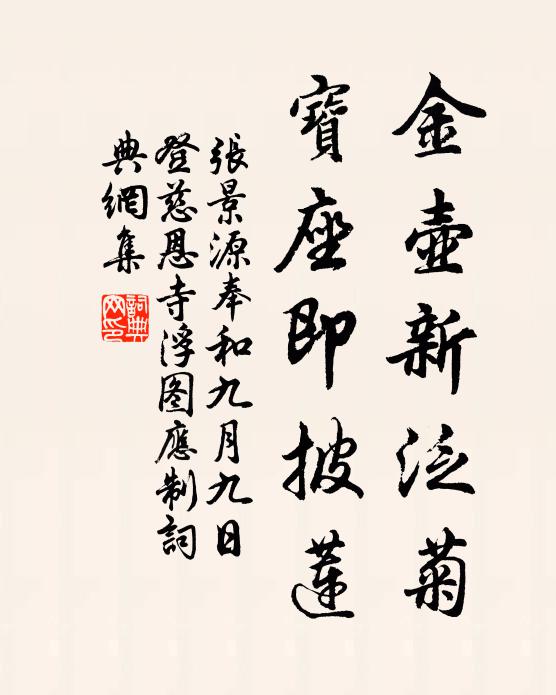 金壺新泛菊
寶座即披蓮
張景源奉和九月九日
登慈恩寺浮图應制詞
典網集
詞典網印